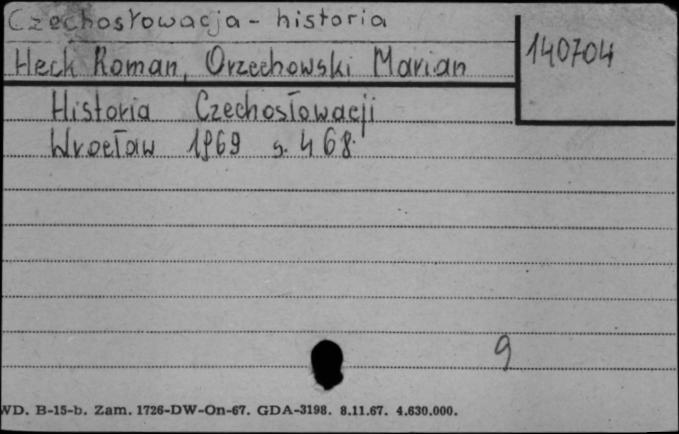 Czechosłowacja - historia
140704
Heck Roman, Orzechowski Marian
Historia Czechosłowacji
Wrocław 1969 s. 468.
9
WD. B-15-b. Zam. 1726-DW-On-67. GDA-3198. 8.11.67. 4.630.000.